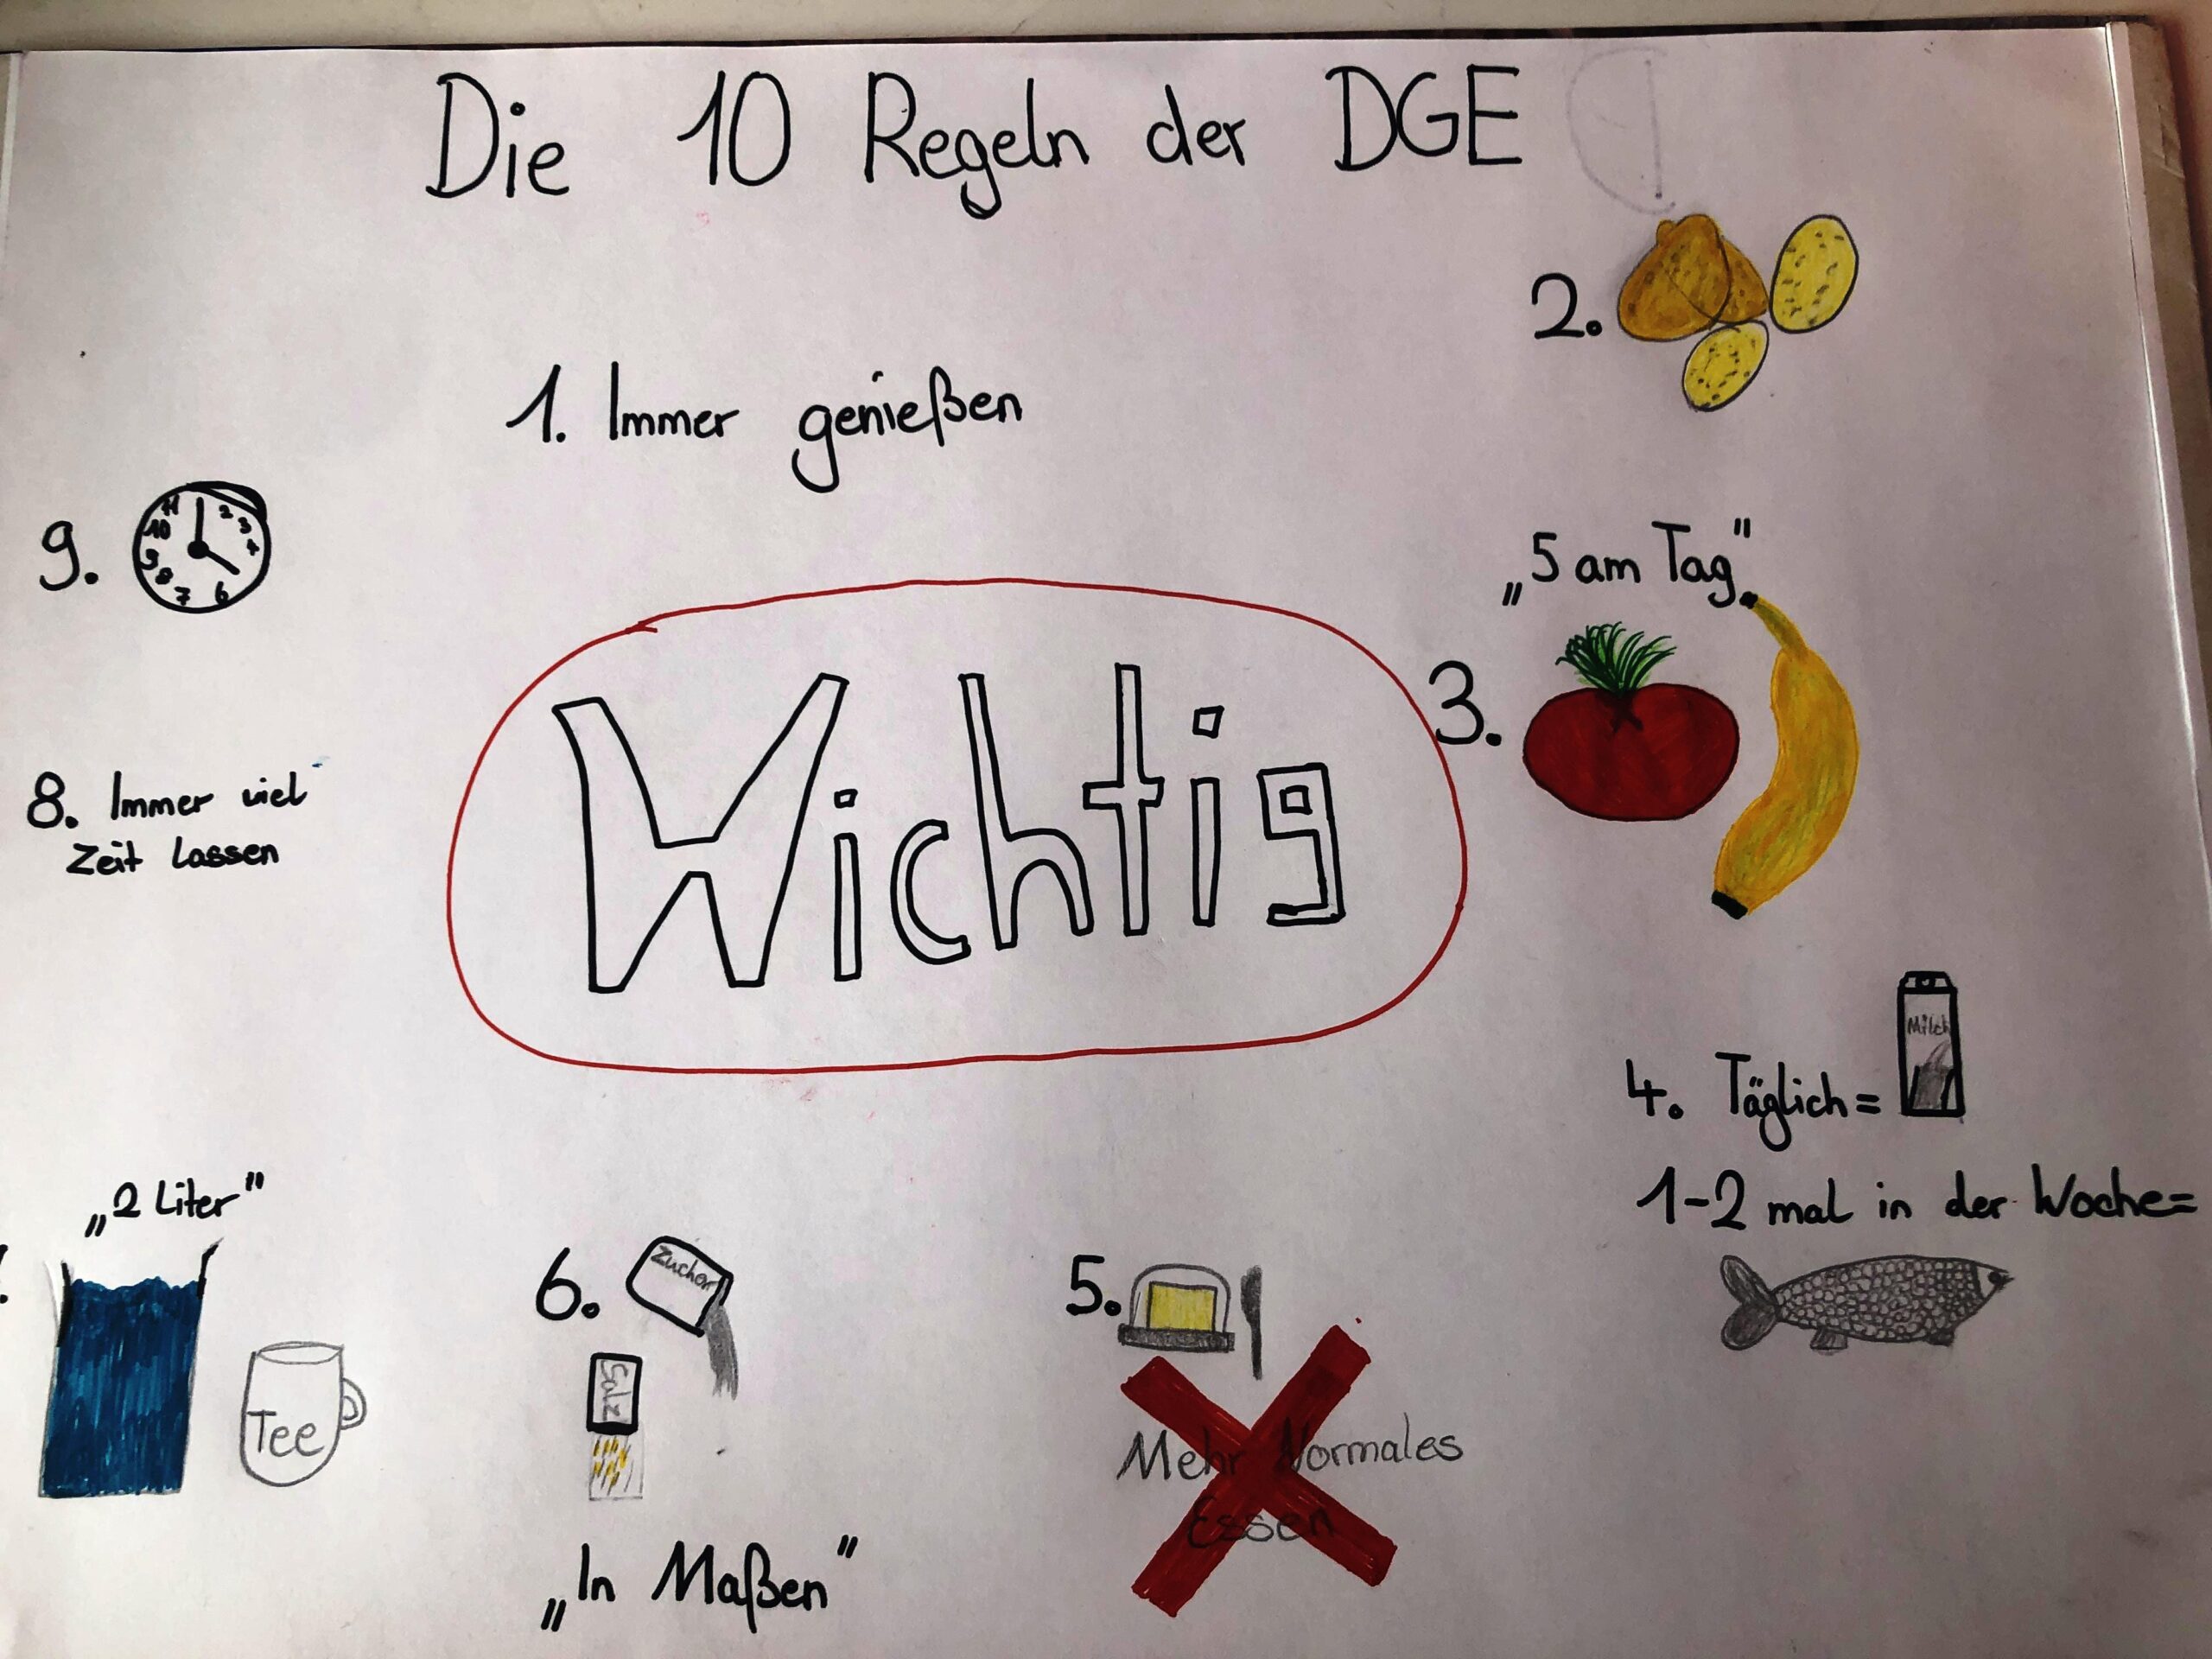 Die 10 Regeln der DGE
1. Immer genießen
2.
„5 am Tag"
3.
4. Täglich =
Milch
1-2 mal in der Woche =
5.
Mehr Normales
Essen
6.
Zucker
Salz
„In Maßen"
„2 Liter"
Tee
8. Immer viel
Zeit lassen
9.
11 2 3 4 6 7 8 9 10
Wichtig